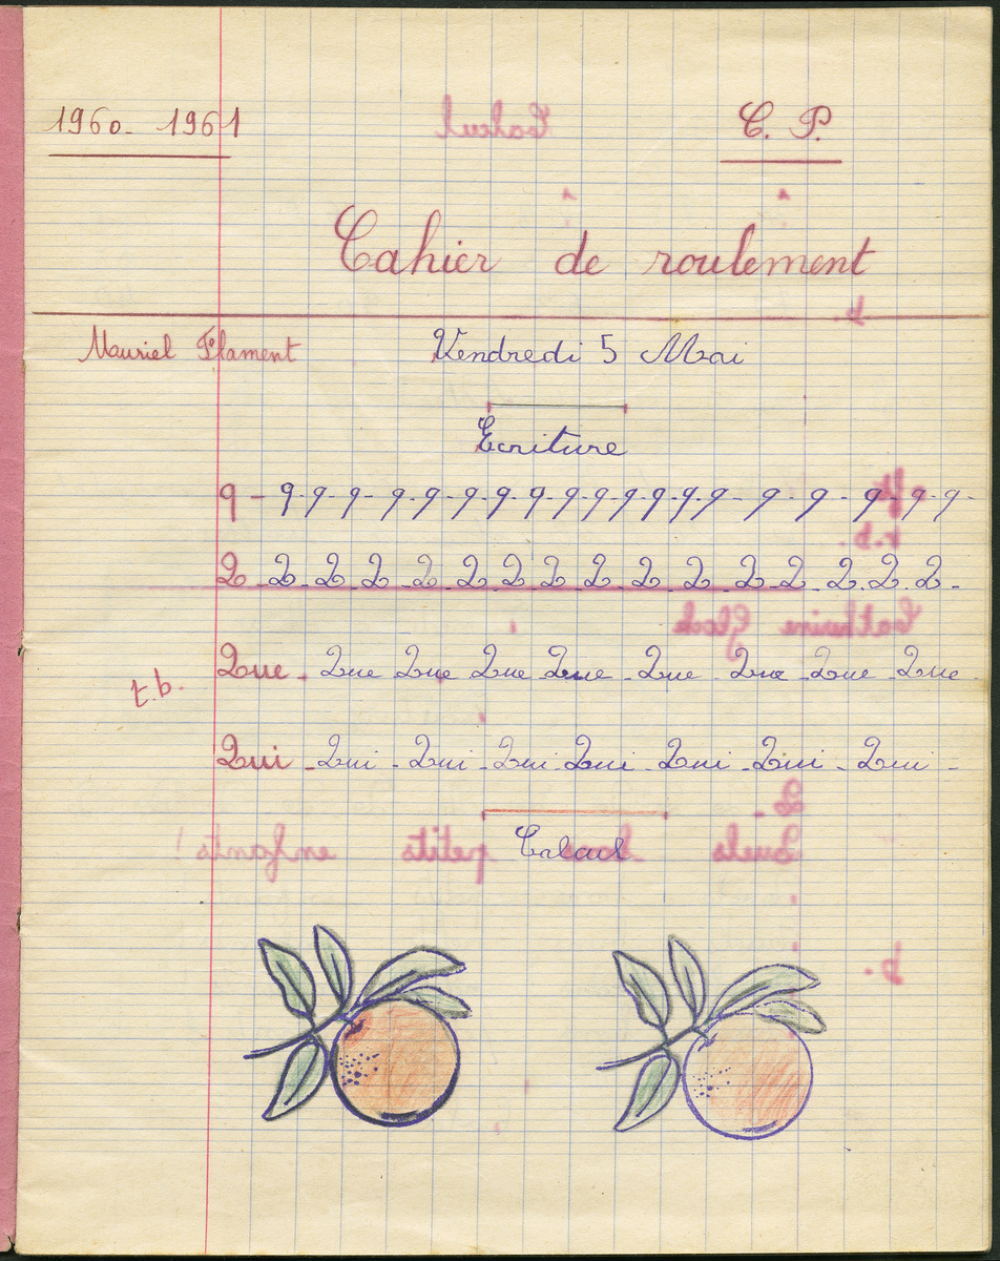 1960-1961 C. P.
Cahier de roulement
Muriel Flament Vendredi 5 Mai
Ecriture
q - q-q-q- q-q-q-q-q-q-q-q-q-q-q- q-q- q-q-q-
2 - 2 - 2 - 2 - 2 - 2 - 2 - 2 - 2 - 2 - 2 - 2 - 2 - 2 - 2 - 2 -
Que - Que Que Que Que - Que - Que - Que - Que
t.b.
Qui - Qui - Qui - Qui - Qui - Qui - Qui - Qui -
Calcul